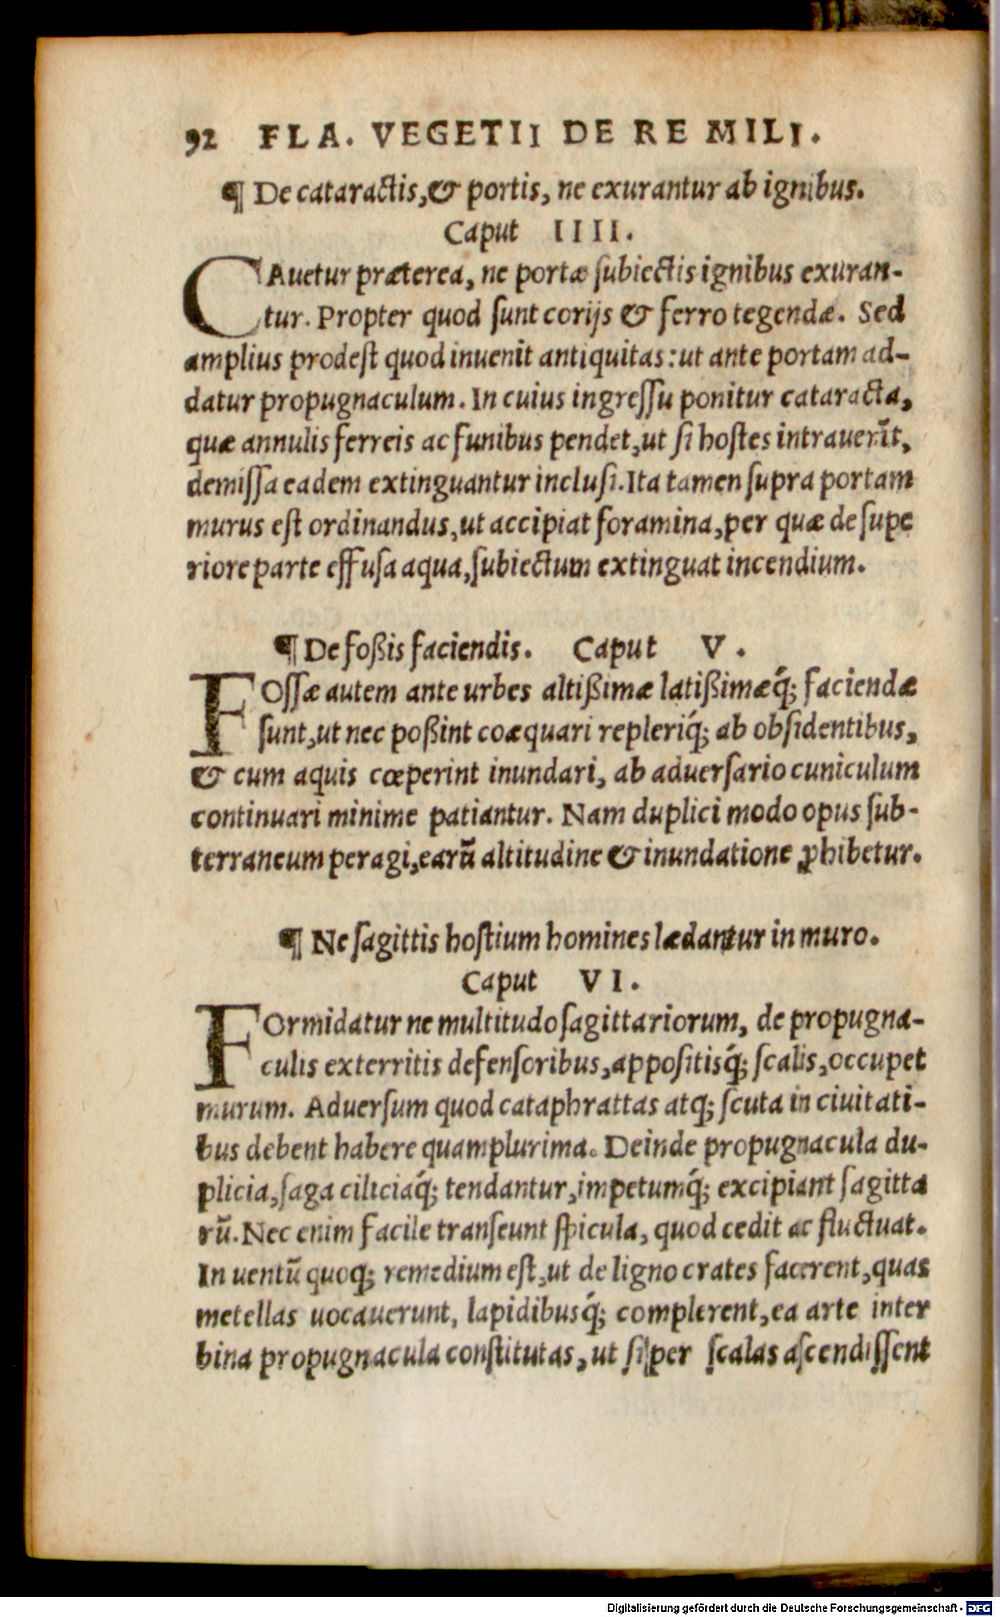 92 FLA. VEGETII DE RE MILI.
¶ De cataractis, & portis, ne exurantur ab ignibus.
Caput IIII.
CAuetur præterea, ne portæ ſubiectis ignibus exuran-
tur. Propter quod ſunt corijs & ferro tegendæ. Sed
amplius prodeſt quod inuenit antiquitas: ut ante portam ad-
datur propugnaculum. In cuius ingreſſu ponitur cataracta,
quæ annulis ferreis ac funibus pendet, ut ſi hoſtes intrauerīt,
demiſſa eadem extinguantur incluſi. Ita tamen ſupra portam
murus eſt ordinandus, ut accipiat foramina, per quæ de ſupe
riore parte effuſa aqua, ſubiectum extinguat incendium.
¶ De foßis faciendis. Caput V.
FOſſæ autem ante urbes altißimæ latißimæq́; faciendæ
ſunt, ut nec poßint coæquari repleriq́; ab obſidentibus,
& cum aquis cœperint inundari, ab aduerſario cuniculum
continuari minime patiantur. Nam duplici modo opus ſub-
terraneum peragi, earū altitudine & inundatione ꝓhibetur.
¶ Ne ſagittis hoſtium homines lædantur in muro.
Caput VI.
FOrmidatur ne multitudo ſagittariorum, de propugna-
culis exterritis defenſoribus, appoſitisq́; ſcalis, occupet
murum. Aduerſum quod cataphrattas atq; ſcuta in ciuitati-
bus debent habere quamplurima. Deinde propugnacula du-
plicia, ſaga ciliciaq́; tendantur, impetumq́; excipiant ſagitta
rū. Nec enim facile tranſeunt ſpicula, quod cedit ac fluctuat.
In uentū quoq; remedium eſt, ut de ligno crates facerent, quas
metellas uocauerunt, lapidibusq́; complerent, ea arte inter
bina propugnacula conſtitutas, ut ſi per ſcalas aſcendiſſent
Digitalisierung gefördert durch die Deutsche Forschungsgemeinschaft - DFG